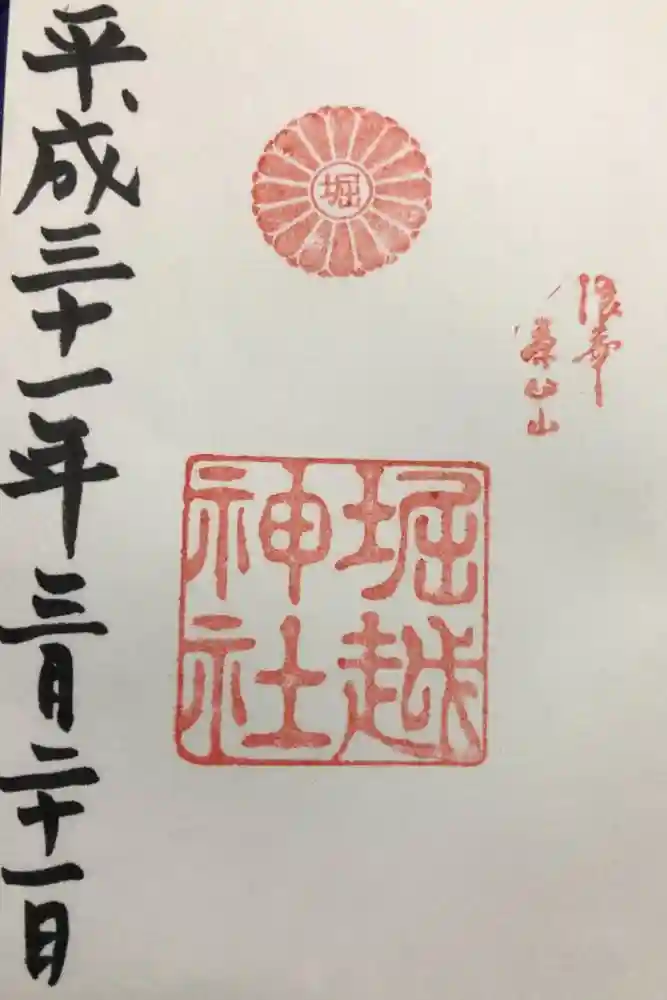 堀
浪華
茶臼山
堀越
神社
平成三十一年三月二十一日